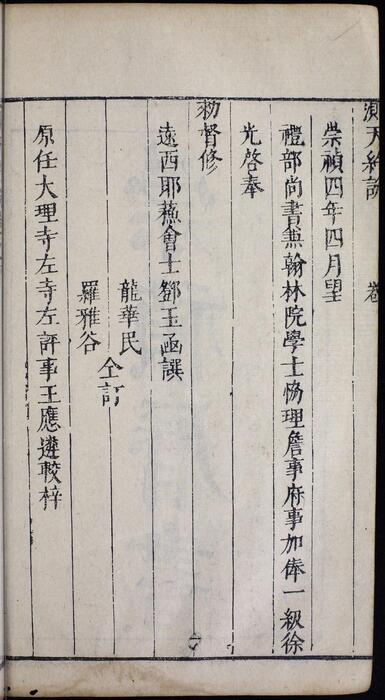 測天約說 卷
崇禎四年四月望
禮部尚書兼翰林院學士協理詹事府事加俸一級徐
光啓奉
勑督修
遠西耶蘇會士鄧玉函譔
龍華民
羅雅谷
仝訂
原任大理寺左寺左評事王應遴較梓